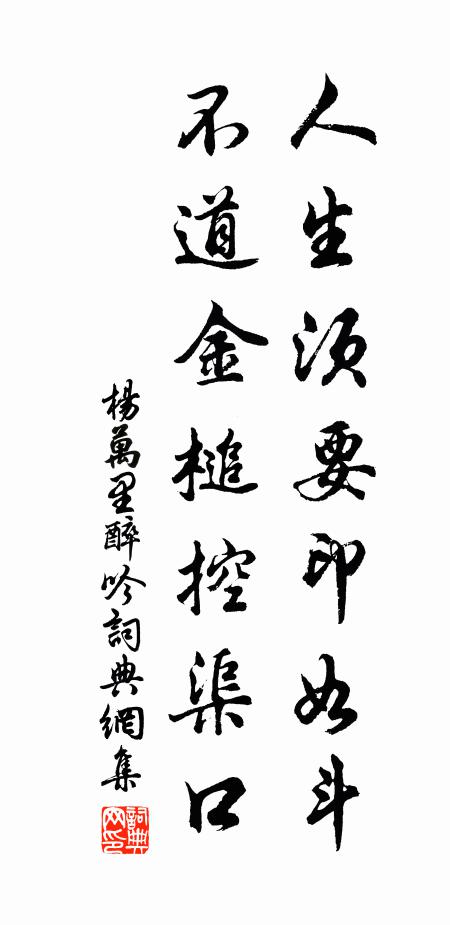 人生須要印如斗
不道金槌控渠口
楊萬里醉吟詞典網集
詞典网印